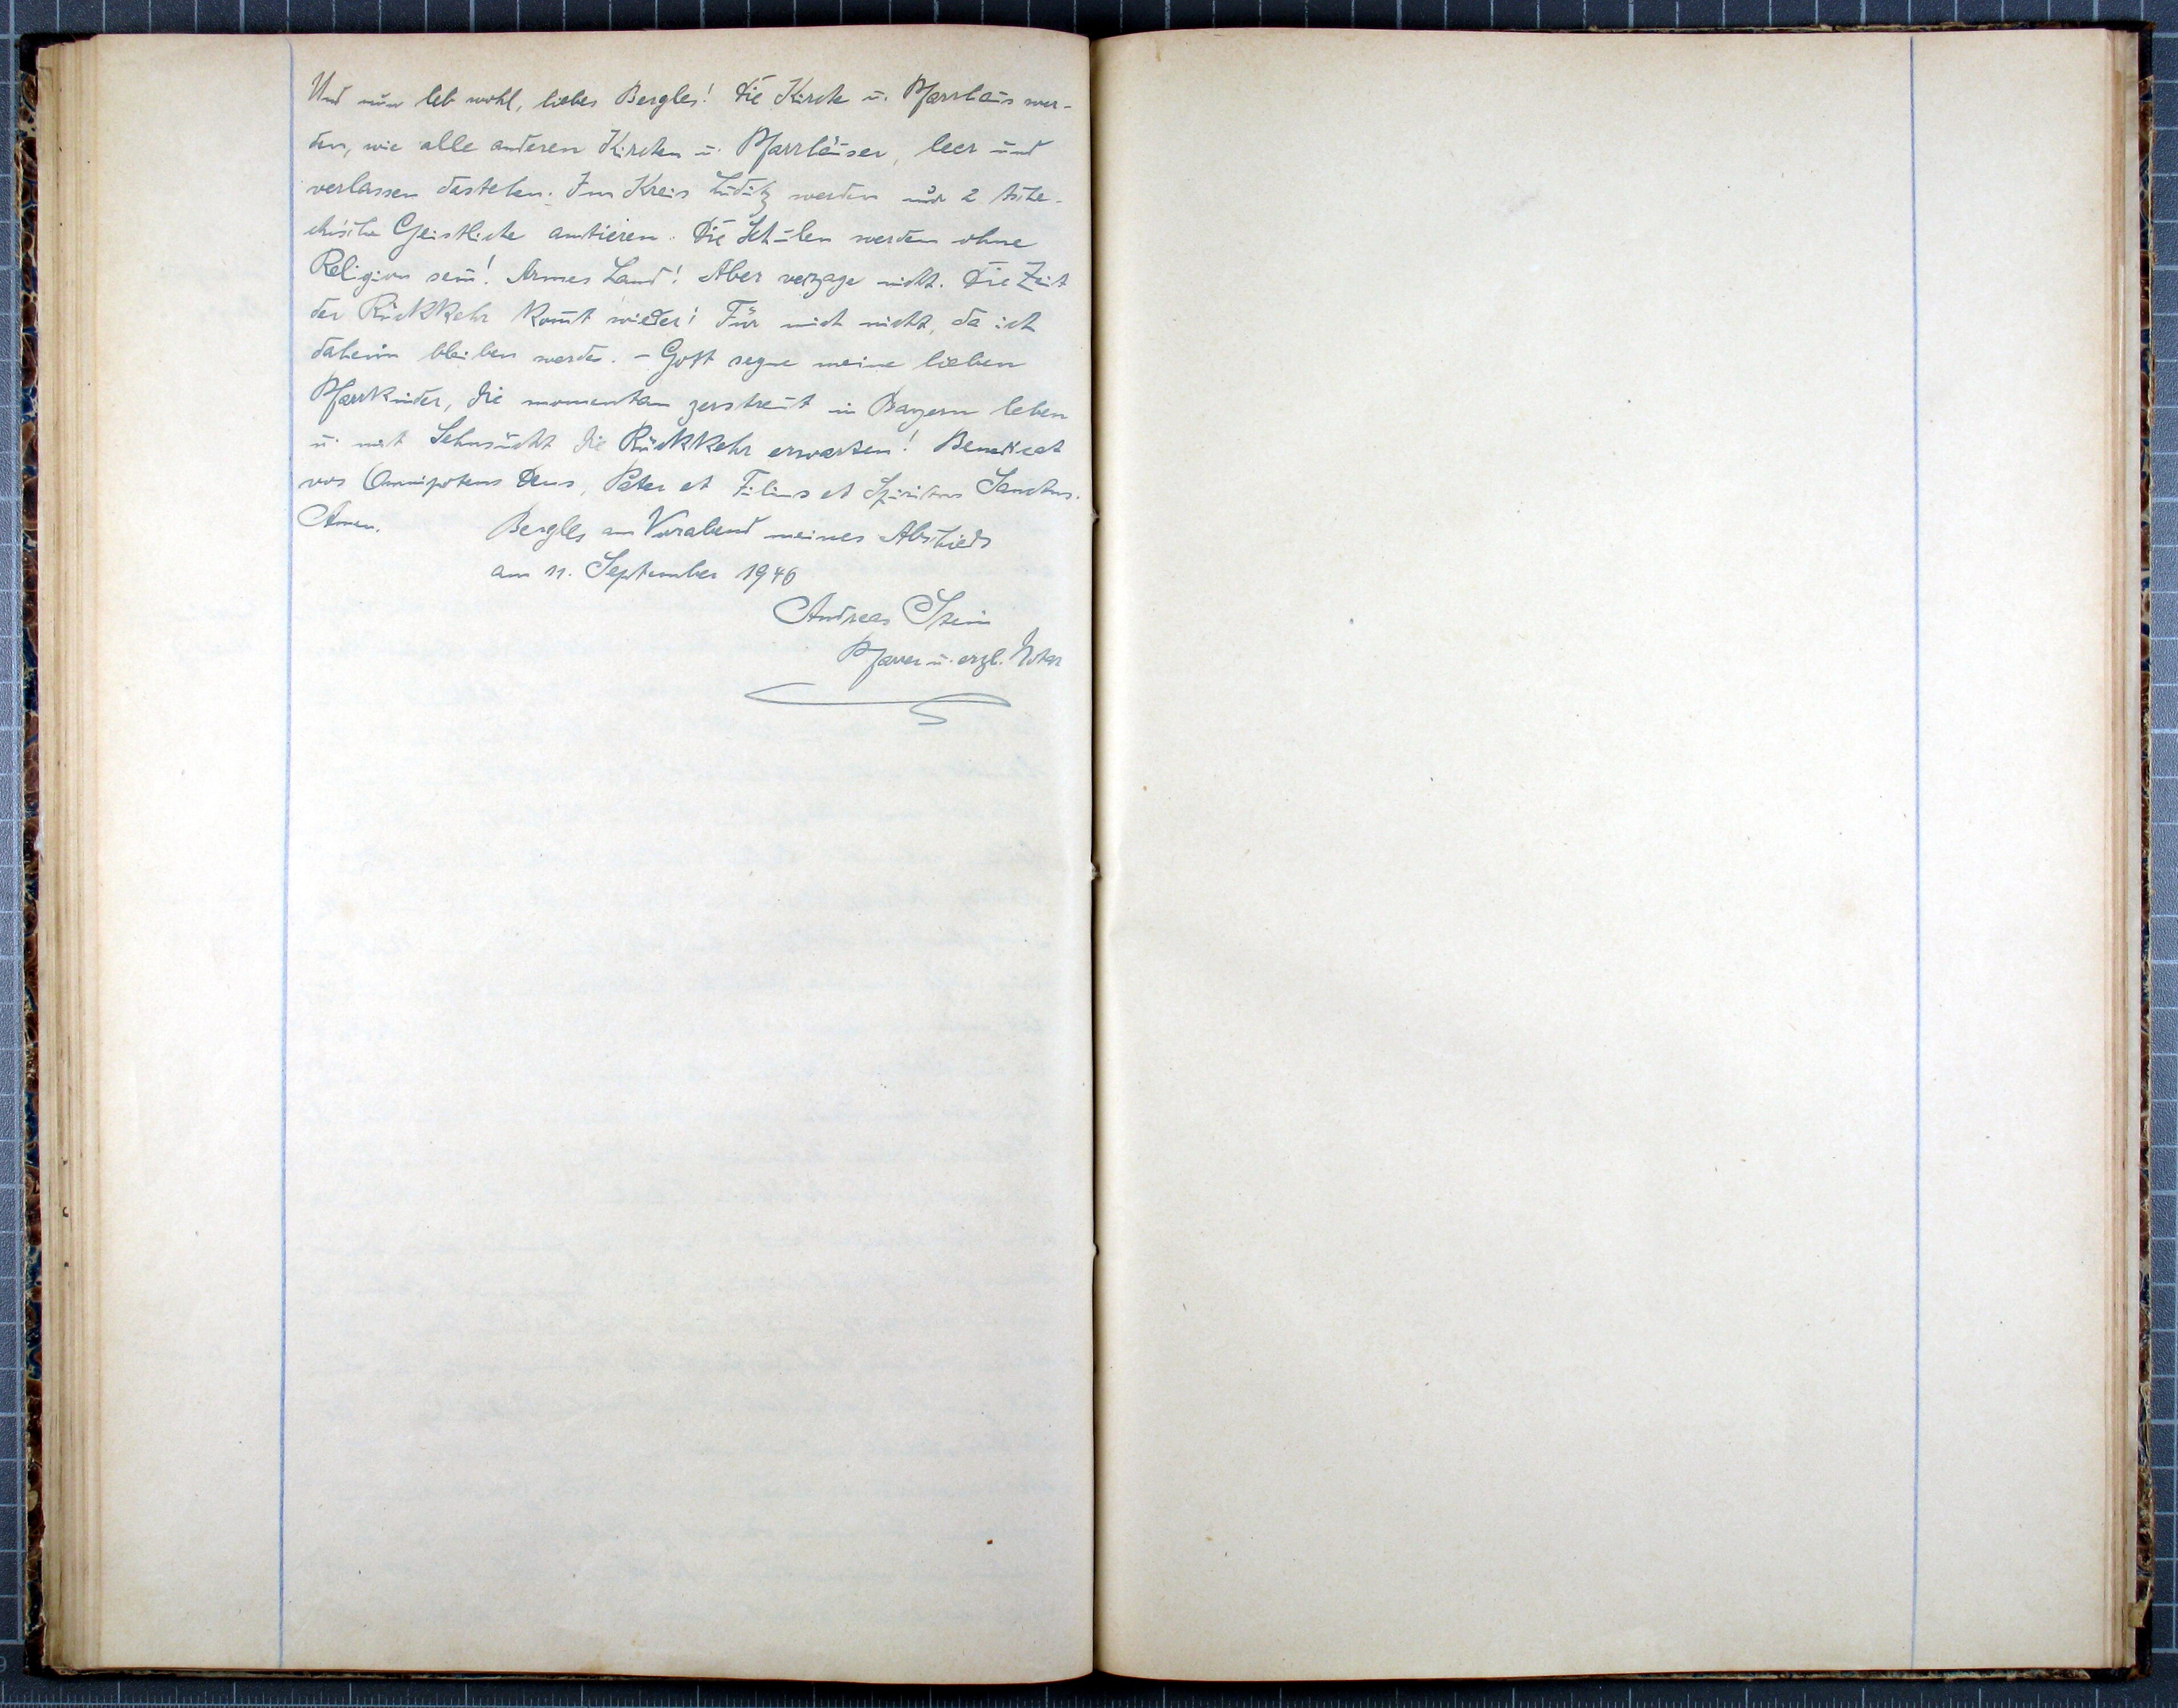 Und nun leb wohl, liebes Bergles! Die Kirche u. Pfarrhaus wer-
den, wie alle anderen Kirchen u. Pfarrhäuser, leer und
verlassen dastehen. Im Kreis Luditz werden nur 2 tsche-
chische Geistliche amtieren. Die Schulen werden ohne
Religion sein! Armes Land! Aber verzage nicht. Die Zeit
der Rückkehr komt wieder! Für mich nicht, da ich
daheim bleiben werde. - Gott segne meine lieben
Pfarrkinder, die momentan zerstreut in Bayern leben
u. mit Sehnsucht die Rückkehr erwarten! Benedicat
vos Omnipotens Deus, Pater et Filius et Spiritus Sanctus.
Amen. Bergles am Vorabend meines Abschieds
am 11. September 1946
Andreas Stein
Pfarrer u. erzb. Notar